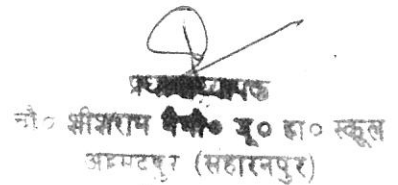 प्रधानाध्यापक
चौ० श्रीशराम मैमो० जू० हा० स्कूल
अहमदपुर (सहारनपुर)